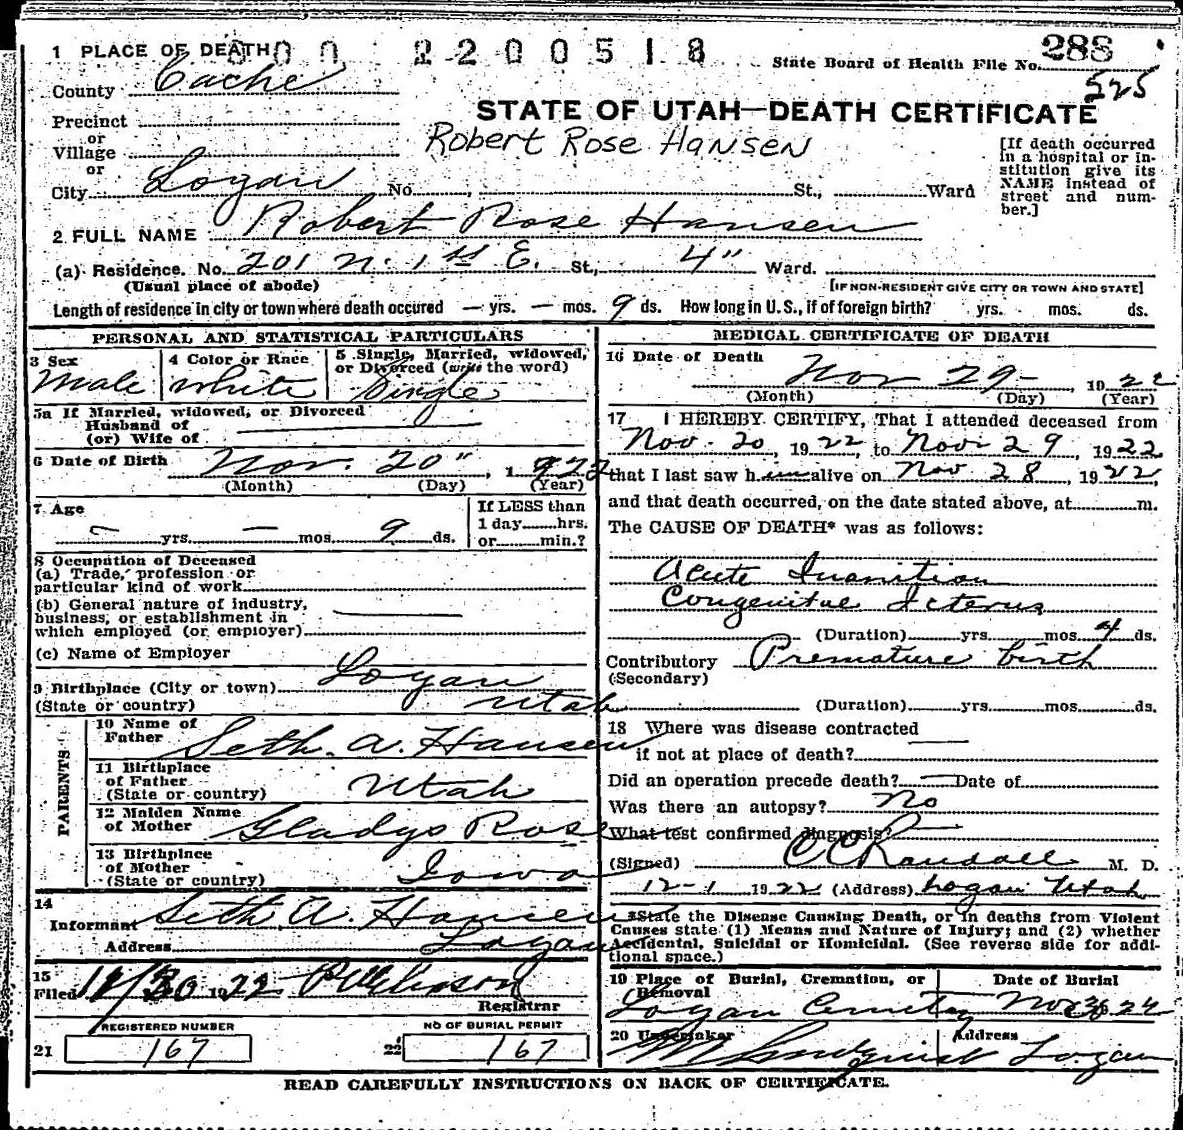 1 PLACE OF DEATH 500 2200518 State Board of Health File No. 288
County Cache 525
STATE OF UTAH—DEATH CERTIFICATE
Precinct
or
Village
or
Robert Rose Hansen
[If death occurred in a hospital or in-
stitution give its
NAME instead of
street and num-
ber.]
City Logan No. St., Ward
2 FULL NAME Robert Rose Hansen
(a) Residence. No. 201 N. 1st E. St., 4" Ward.
(Usual place of abode) [IF NON-RESIDENT GIVE CITY OR TOWN AND STATE]
Length of residence in city or town where death occured — yrs. — mos. 9 ds. How long in U.S., if of foreign birth? yrs. mos. ds.
PERSONAL AND STATISTICAL PARTICULARS
3 Sex
Male
4 Color or Race
White
5 Single, Married, widowed,
or Divorced (write the word)
Single
5a If Married, widowed, or Divorced
Husband of
(or) Wife of
6 Date of Birth Nov. 20", 1922
(Month) (Day) (Year)
7 Age
— yrs. — mos. 9 ds.
If LESS than
1 day......hrs.
or......min.?
8 Occupation of Deceased
(a) Trade, profession or
particular kind of work
(b) General nature of industry,
business, or establishment in
which employed (or employer)
(c) Name of Employer
9 Birthplace (City or town) Logan
(State or country) Utah
PARENTS
10 Name of
Father Seth. A. Hansen
11 Birthplace
of Father
(State or country) Utah
12 Maiden Name
of Mother Gladys Rose
13 Birthplace
of Mother
(State or country) Iowa
14
Informant Seth A. Hansen
Address Logan
15
Filed 30 1922
Registrar
REGISTERED NUMBER
21 167
NO OF BURIAL PERMIT
22 167
MEDICAL CERTIFICATE OF DEATH
16 Date of Death
Nov 29 — , 1922
(Month) (Day) (Year)
17 I HEREBY CERTIFY, That I attended deceased from
Nov. 20, 1922, to Nov 29, 1922
that I last saw him alive on Nov 28, 1922,
and that death occurred, on the date stated above, at......m.
The CAUSE OF DEATH* was as follows:
Acute Inanition
Congenital Icterus
(Duration) yrs. mos. 4 ds.
Contributory Premature birth
(Secondary)
(Duration) yrs. mos. ds.
18 Where was disease contracted
if not at place of death?
Did an operation precede death? — Date of
Was there an autopsy? No
What test confirmed diagnosis?
(Signed) C C Randall M. D.
12-1 1922 (Address) Logan Utah
*State the Disease Causing Death, or in deaths from Violent
Causes state (1) Means and Nature of Injury; and (2) whether
Accidental, Suicidal or Homicidal. (See reverse side for addi-
tional space.)
19 Place of Burial, Cremation, or
Removal
Date of Burial
Logan Cemetery Nov 30 22
20 Undertaker Address
Lindquist Logan
READ CAREFULLY INSTRUCTIONS ON BACK OF CERTIFICATE.